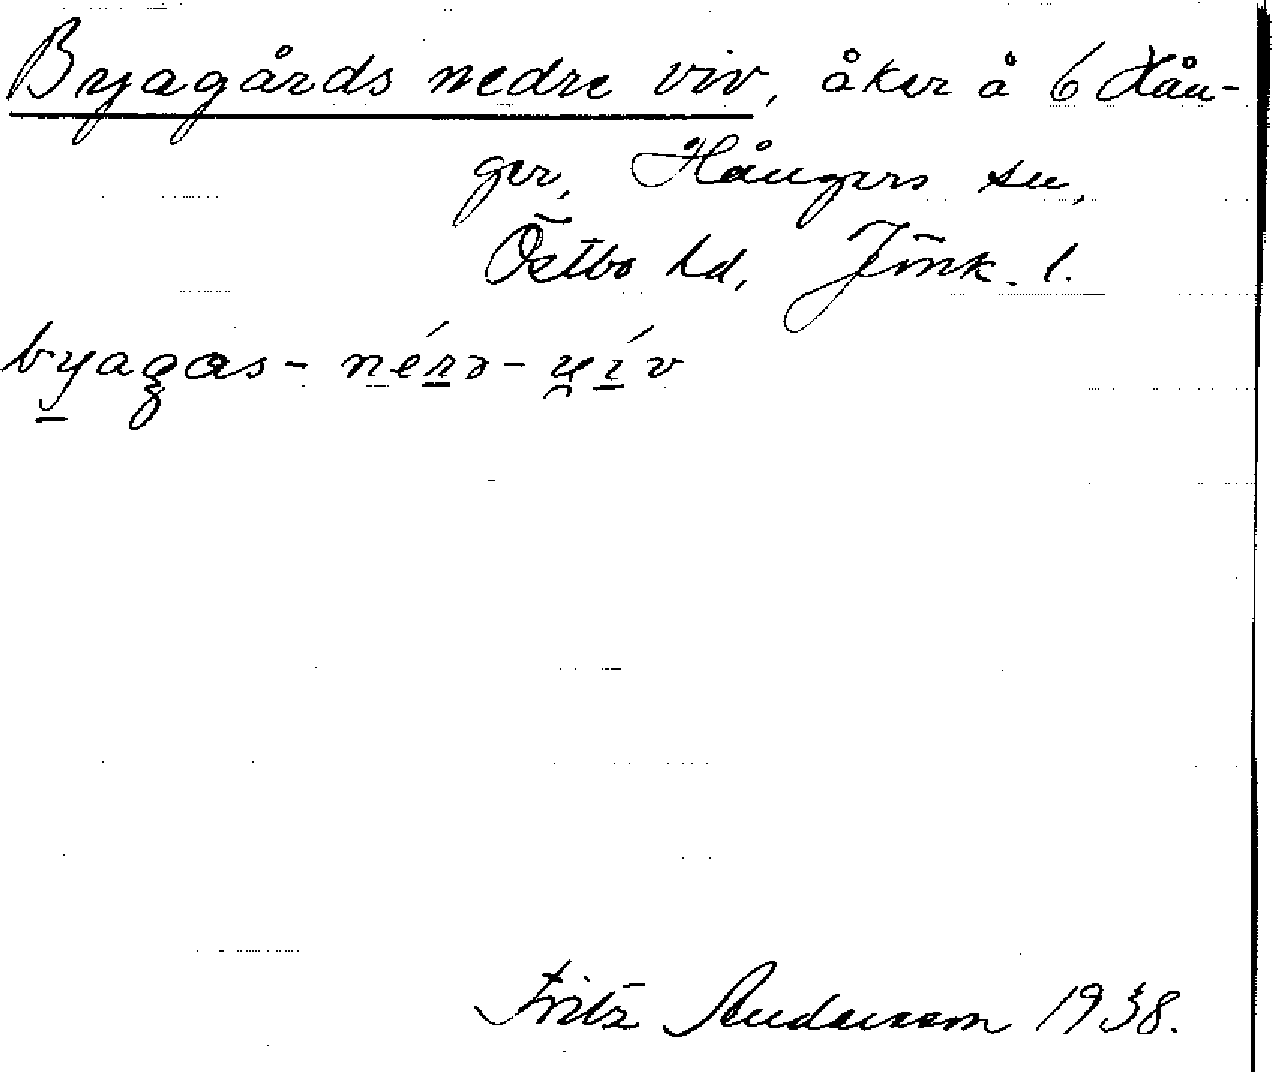 Byagårds nedre viv, åker å 6 Hån-
ger, Hångers sn,
Östbo hd, Jönk. l.
byagas - nérə - yív
Fritz Andersson 1938.